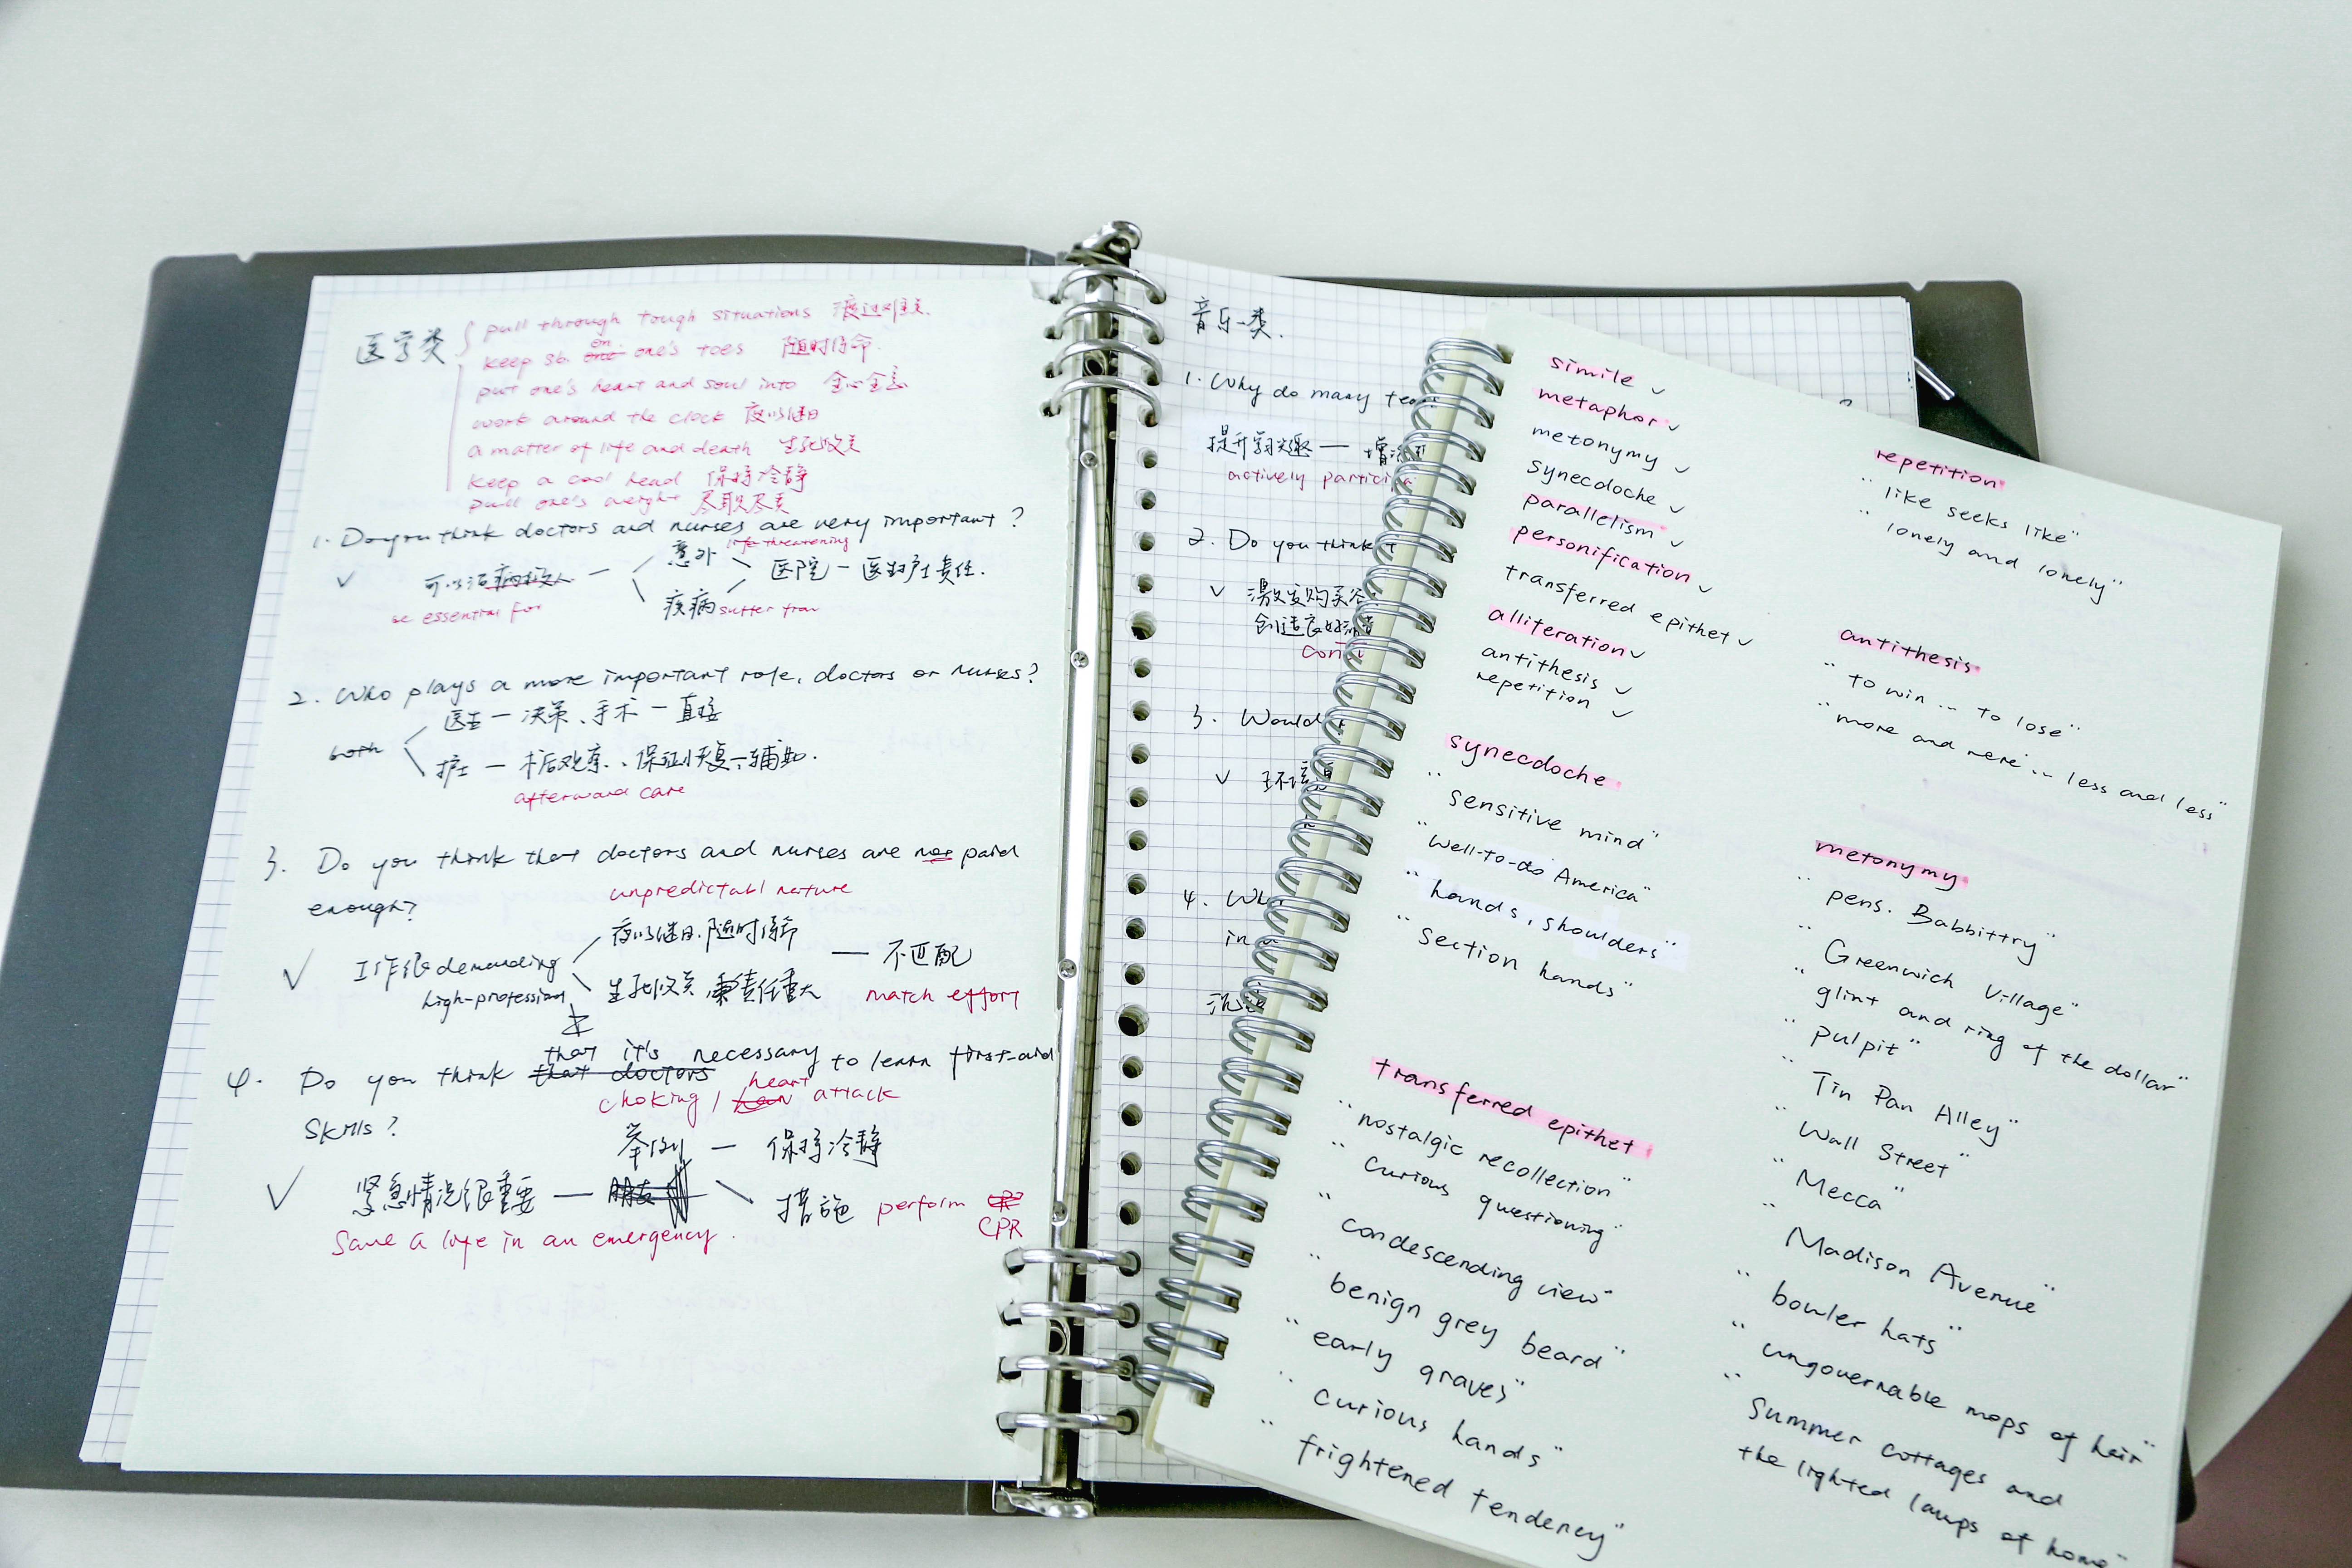 医学类
pull through tough situations 渡过难关.
keep sb. on one's toes 随时待命.
put one's heart and soul into 全心全意
work around the clock 夜以继日
a matter of life and death 生死攸关
keep a cool head 保持冷静
pull one's weight 尽职尽责
1. Do you think doctors and nurses are very important?
life-threatening
✓ 可以治病救人 — 意外 医院 — 医生护士责任.
be essential for 疾病 suffer from
2. Who plays a more important role, doctors or nurses?
both 医生 — 决策、手术 — 直接
护士 — 术后观察、保证恢复 — 辅助.
afterward care
3. Do you think that doctors and nurses are not paid
enough?
unpredictabl nature
夜以继日.随时待命
✓ 工作很demanding — 不匹配
high-profession 生死攸关 责任重大 match effort
4. Do you think that doctors that it's necessary to learn first-aid
skills?
choking / heart attack
举例 — 保持冷静
✓ 紧急情况很重要 — 朋友 措施 perform CPR
save a life in an emergency.
音乐类.
1. Why do many tea
提升学习兴趣 — 增
actively particip
2. Do you think
✓ 激发购买
创造良好
con
3. Would
✓ 环境
4. Wh
in
simile ✓
metaphor ✓
metonymy ✓
synecdoche ✓
parallelism ✓
personification ✓
transferred epithet ✓
alliteration ✓
antithesis ✓
repetition ✓
synecdoche
"sensitive mind"
"well-to-do America"
"hands, shoulders"
"section hands"
transferred epithet
"nostalgic recollection"
"curious questioning"
"condescending view"
"benign grey beard"
"early graves"
"curious hands"
"frightened tendency"
repetition
"like seeks like"
"lonely and lonely"
antithesis
"to win … to lose"
"more and more … less and less"
metonymy
"pens. Babbittry"
"Greenwich Village"
"glint and ring of the dollar"
"pulpit"
"Tin Pan Alley"
"Wall Street"
"Mecca"
"Madison Avenue"
"bowler hats"
"ungovernable mops of hair"
"Summer cottages and
the lighted lamps of home"